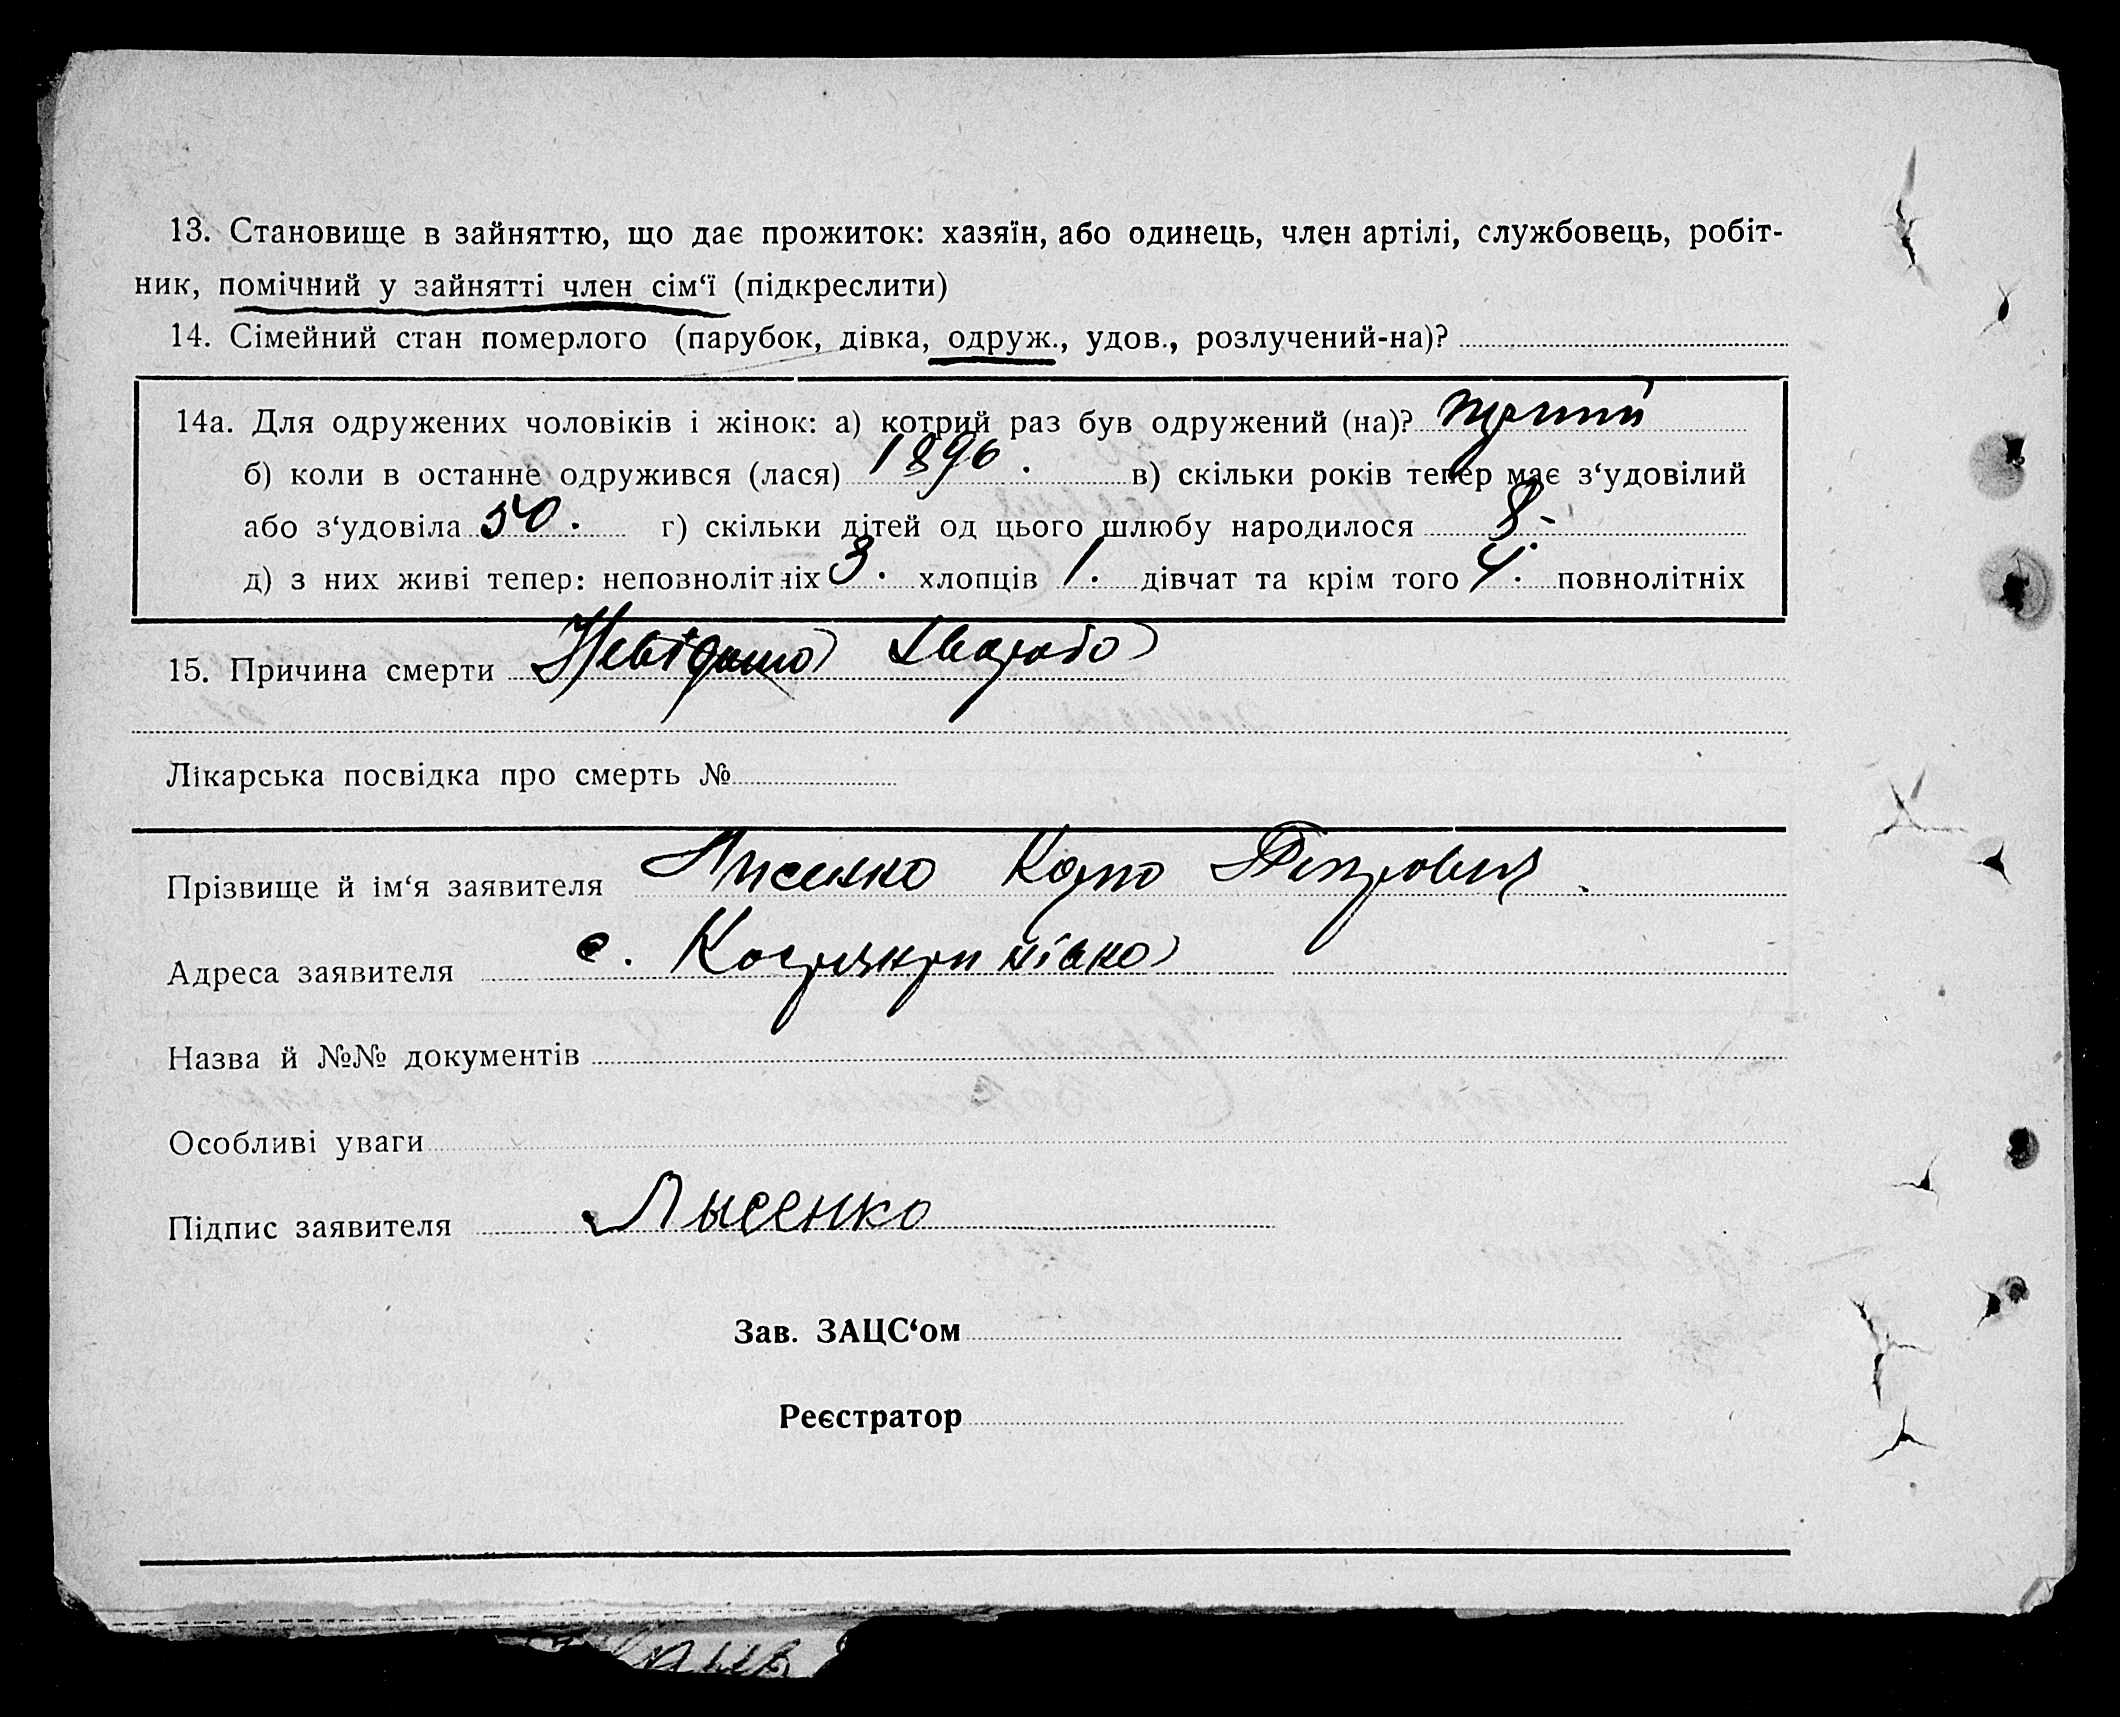 13. Становище в зайняттю, що дає прожиток: хазяїн, або одинець, член артілі, службовець, робіт-
ник, помічний у зайнятті член сім‘ї (підкреслити)
14. Сімейний стан померлого (парубок, дівка, одруж., удов., розлучений-на)?
14а. Для одружених чоловіків і жінок: а) котрий раз був одружений (на)?
б) коли в останнє одружився (лася) 1896. в) скільки років тепер має з‘удовілий
або з‘удовіла 50. г) скільки дітей од цього шлюбу народилося 8.-
д) з них живі тепер: неповнолітніх 3. хлопців 1. дівчат та крім того 4. повнолітніх
15. Причина смерти Невідома Хвороба
Лікарська посвідка про смерть №
Прізвище й ім‘я заявителя Лисенко Карпо Петрович.
Адреса заявителя с. Костянтинівка
Назва й №№ документів
Особливі уваги
Підпис заявителя Лысенко
Зав. ЗАЦС‘ом
Реєстратор